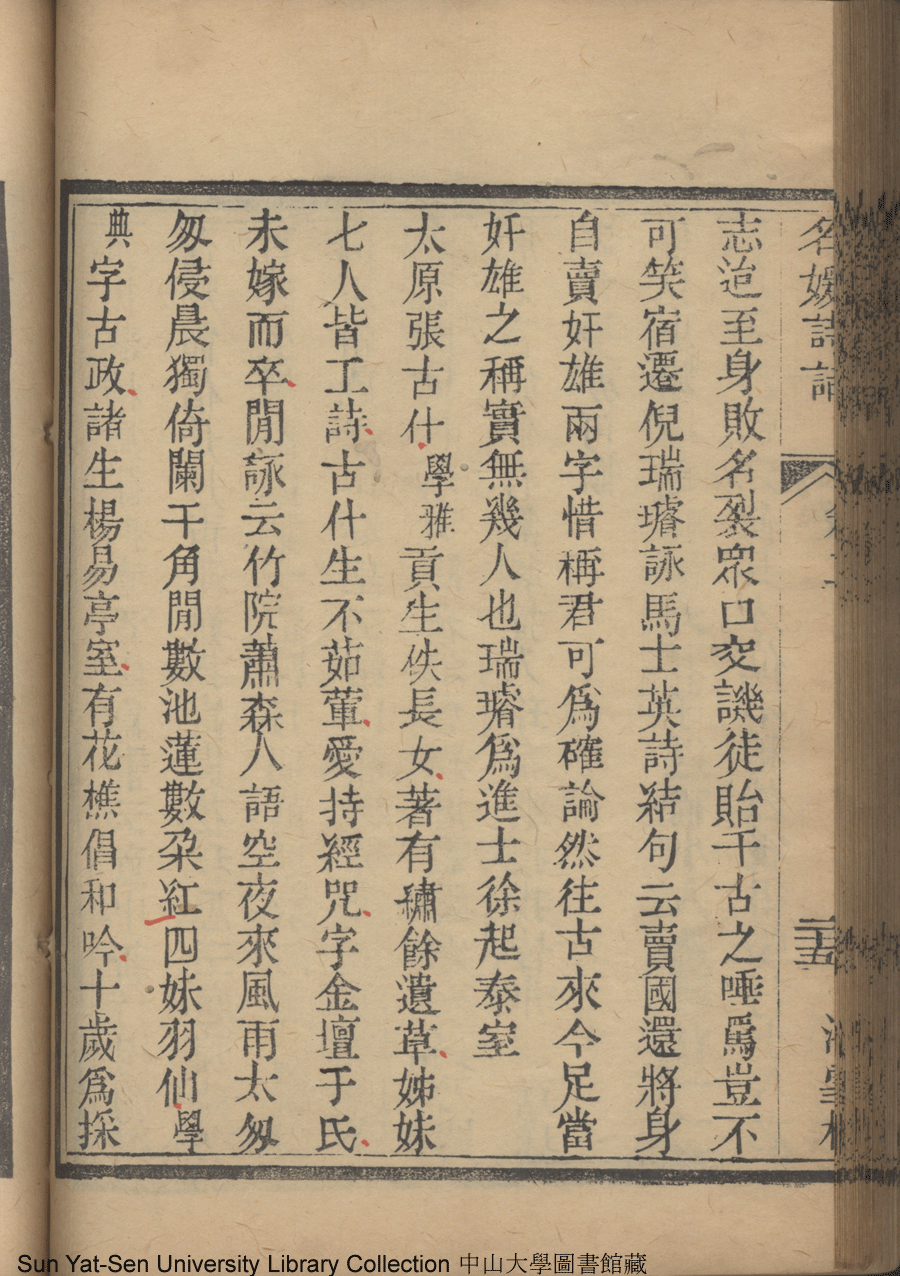 名媛詩話
二十五
志迨至身敗名裂衆口交譏徒貽千古之唾罵豈不
可笑宿遷倪瑞璿詠馬士英詩結句云賣國還將身
自賣奸雄兩字惜稱君可爲確論然往古來今足當
奸雄之稱實無幾人也瑞璿爲進士徐起泰室
太原張古什學雅貢生佚長女著有繡餘遺草姊妹
七人皆工詩古什生不茹葷愛持經咒字金壇于氏
未嫁而卒閒詠云竹院蕭森人語空夜來風雨太匆
匆侵晨獨倚闌干角閒數池蓮數朶紅四妹羽仙學
典字古政諸生楊易亭室有花樵倡和吟十歲爲採
Sun Yat-Sen University Library Collection 中山大學圖書館藏